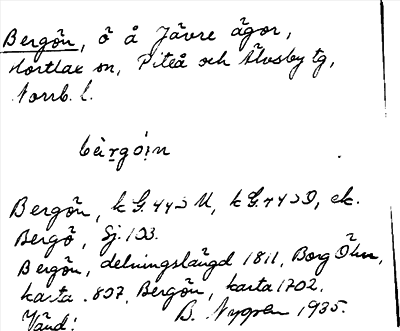 Bergön, ö å Jävre ägor,
Hortlax sn, Piteå och Älvsby tg,
Norrb. l.
bèrgó̩n
Bergön, k G. 44 M, k G. 74 D, ek.
Bergö, Sj. 103.
Bergön, delningslängd 1811, Borg Ön,
karta 1807, Bergön, karta 1702.
Vänd! B. Nygren 1935.